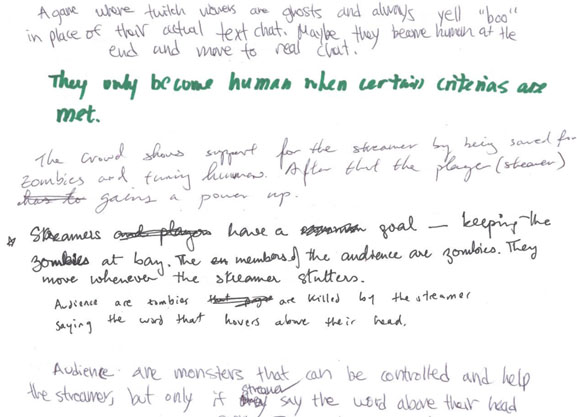 A game where twitch viewers are ghosts and always yell "boo"
in place of their actual text chat. Maybe they become human at the
end and move to real chat.
They only become human when certain criterias are
met.
The crowd shows support for the streamer by being saved from
zombies and turning human. After that the player (streamer)
has to gains a power up.
* Streamers and players have a goal — keeping the
zombies at bay. The members of the audience are zombies. They
move whenever the streamer stutters.
Audience are zombies are killed by the streamer
saying the word that hovers above their head.
Audience are monsters that can be controlled and help
the streamer, but only if streamer say the word above their head